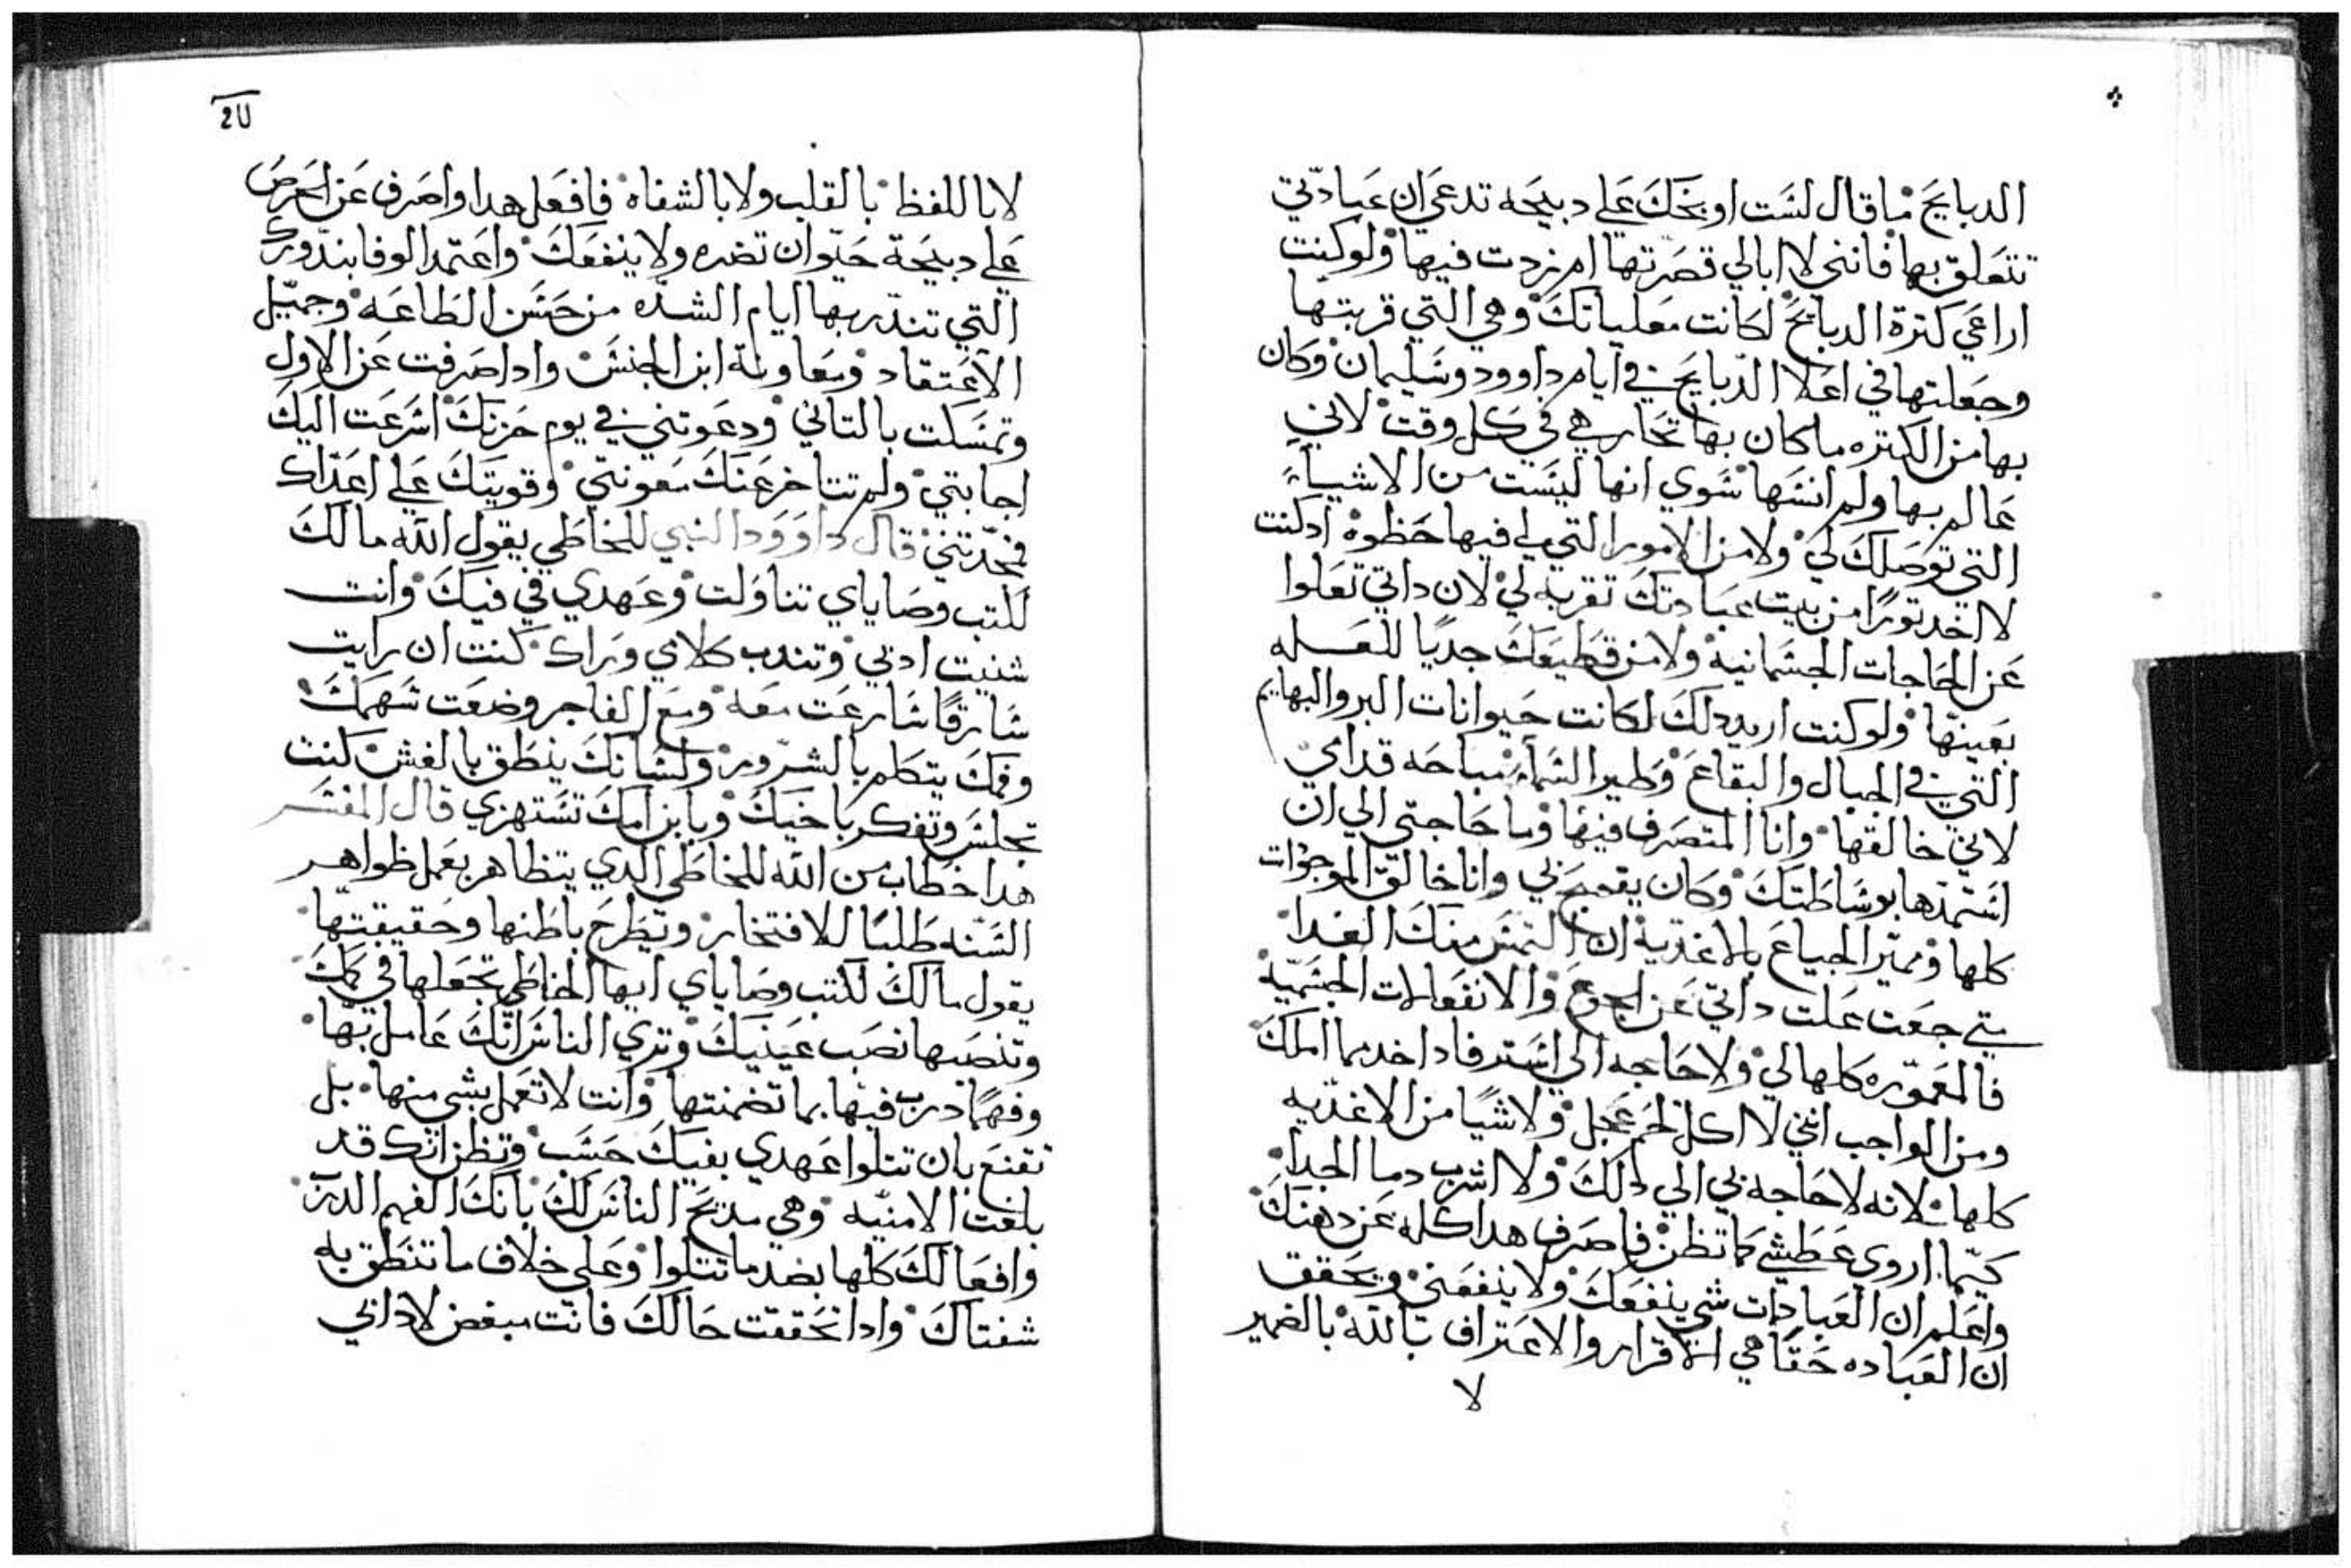 الدبايح ما قال لست اوبخك علي دبيحه تدعي ان عبادتي
تتعلق بها فانني لا ابالي قصرتها ام زدت فيها ولو كنت
اراعي كترة الدبايح لكانت معلياتك وهي التي قربتها
وجعلتها في اعلا الدبايح في ايام داوود وسليمان وكان
بها من الكتره ما كان بها تجاهي في كل وقت لاني
عالم بها ولم انسها سوي انها ليست من الاشياء
التي توصلك لي ولا من الامور التي لي فيها حظوة ادكنت
لا اخد تورًا من بيت عبادتك تقربه لي لان داتي تعلوا
عن الحاجات الجسمانية ولا من قطيعك جديًا للعسله
بعينها ولو كنت اريد دلك لكانت حيوانات البر والبهايم
التي في الجبال والبقاع وطير السماء مباحه قدامي
لاني خالقها وانا المتصرف فيها وما حاجتي الي ان
استمدها بوساطتك وكان يقبح بي وانا خالق الموجودات
كلها ومميز الجياع بالاغدية ان التمس منك الغدا
متي جعت علت داتي عن الجوع والانفعالات الجسميه
فالمعموره كلها لي ولا حاجه الي استرفاد اخد مما املك
ومن الواجب انني لا اكل لحم عجل ولا شيًا من الاغديه
كلها لانه لا حاجه بي الي دلك ولا اشرب دما الجدا
كيما اروي عطشي كما تظن فاصرف هدا كله عن دهنك
واعلم ان العبادات شي ينفعك ولا ينفعني وتحقق
ان العباده حقًا هي الاقرار والاعتراف بالله بالضمير
لا
لا باللفظ بالقلب ولا بالشفاه فافعل هدا واصرف عن الحرص
علي دبيحة حيوان تضره ولا ينفعك واعتمد الوفا بندورك
التي تندر بها ايام الشده من حسن الطاعه وجميل
الاعتقاد ومعاونة ابن الجنس وادا صرفت عن الاول
وتمسكت بالتاني ودعوتني في يوم حزنك اسرعت اليك
اجابتي ولم تتاخر عنك معونتي وقويتك علي اعداك
فمجدتني قال داوود النبي للخاطي يقول الله مالك
لكتب وصاياي تناولت وعهدي في فيك وانت
شنيت ادبي وتندب كلامي وراك كنت ان رايت
سارقًا سارعت معه ومع الفاجر وضعت سهمك
وفمك يتكلم بالشرور ولسانك ينطق بالغش كنت
تجلس وتفكر باخيك وبابن امك تستهزي قال المفسر
هدا خطاب من الله للخاطي الدي يتظاهر بعمل ظواهر
السنه طلبًا للافتخار وتطرح باطنها وحقيقتها
يقول مالك لكتب وصاياي ايها الخاطي تجعلها في كمك
وتنصبها نصب عينيك وتري الناس انك عامل بها
وفهمًا درب فيها بما تضمنتها وانت لا تعمل بشي منها بل
تقنع بان تتلوا عهدي بفيك حسب وتظن انك قد
بلغت الامنيه وهي مديح الناس لك بانك الفهم الدرب
وافعالك كلها بضد ما تتلوا وعلي خلاف ما تنطق به
شفتاك وادا تحققت حالك فانت مبغض لادابي